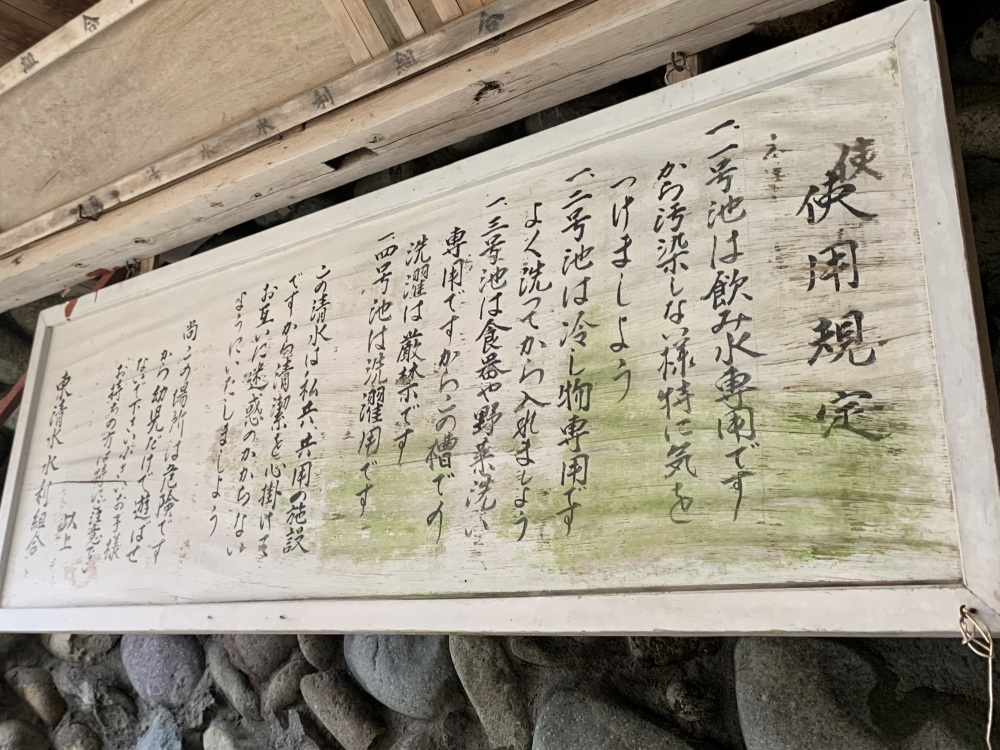 使用規定
一、一号池は飲み水専用です
から汚染しない様特に気を
つけましよう
一、二号池は冷し物専用です
よく洗つてから入れましよう
一、三号池は食器や野菜洗い
専用ですからこの槽での
洗濯は厳禁です
一、四号池は洗濯用です
この清水は私共、共用の施設
ですから清潔を心掛けて
お互いに迷惑のかからない
ようにいたしましよう
尚この場所は危険です
から幼児だけで遊ばせ
ないで下さい小さいお子様
お持ちの方は特に注意を
以上
東清水水利組合
水利組合
組合